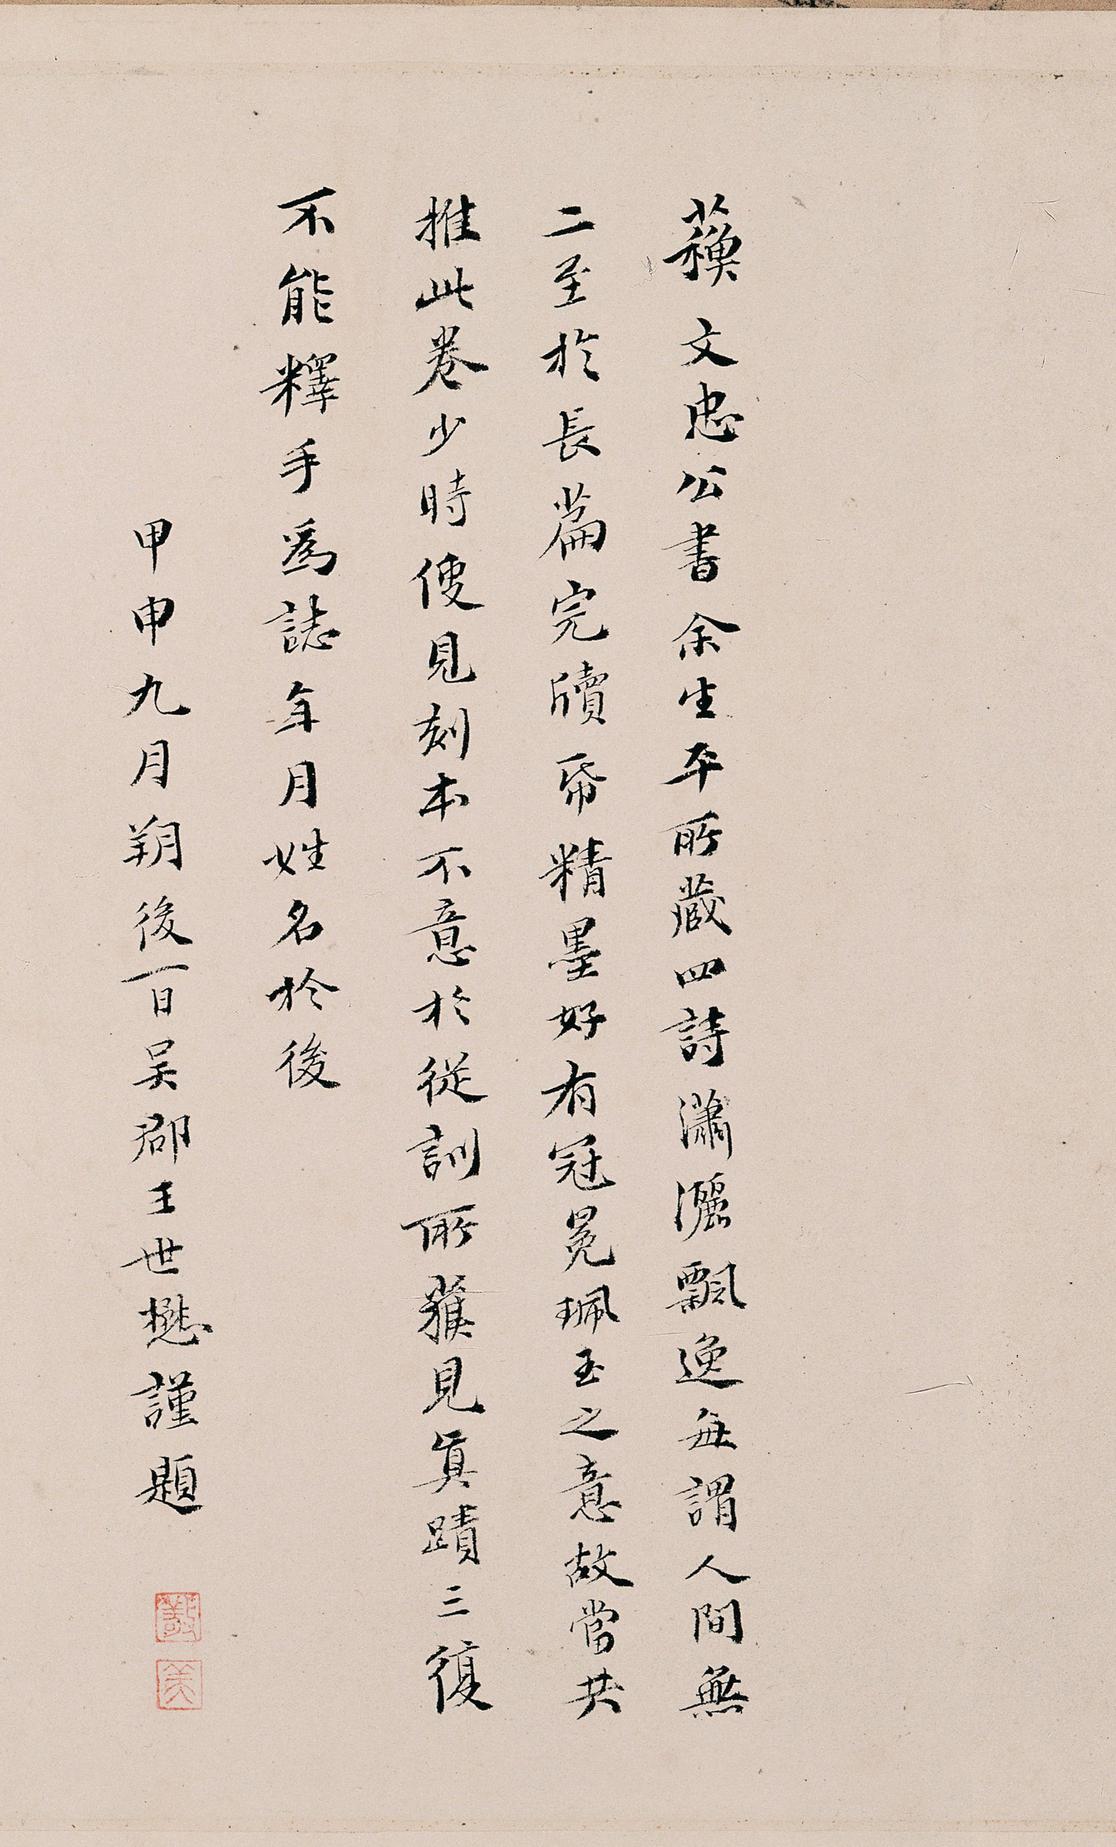 蘓文忠公書余生平所藏四詩瀟灑飄逸每謂人間無
二至於長篇完牘帋精墨好有冠冕珮玉之意故當共
推此卷少時便見刻本不意於從訓所獲見真蹟三復
不能釋手為誌年月姓名於後
甲申九月朔後一日吴郡王世懋謹題
敬
美